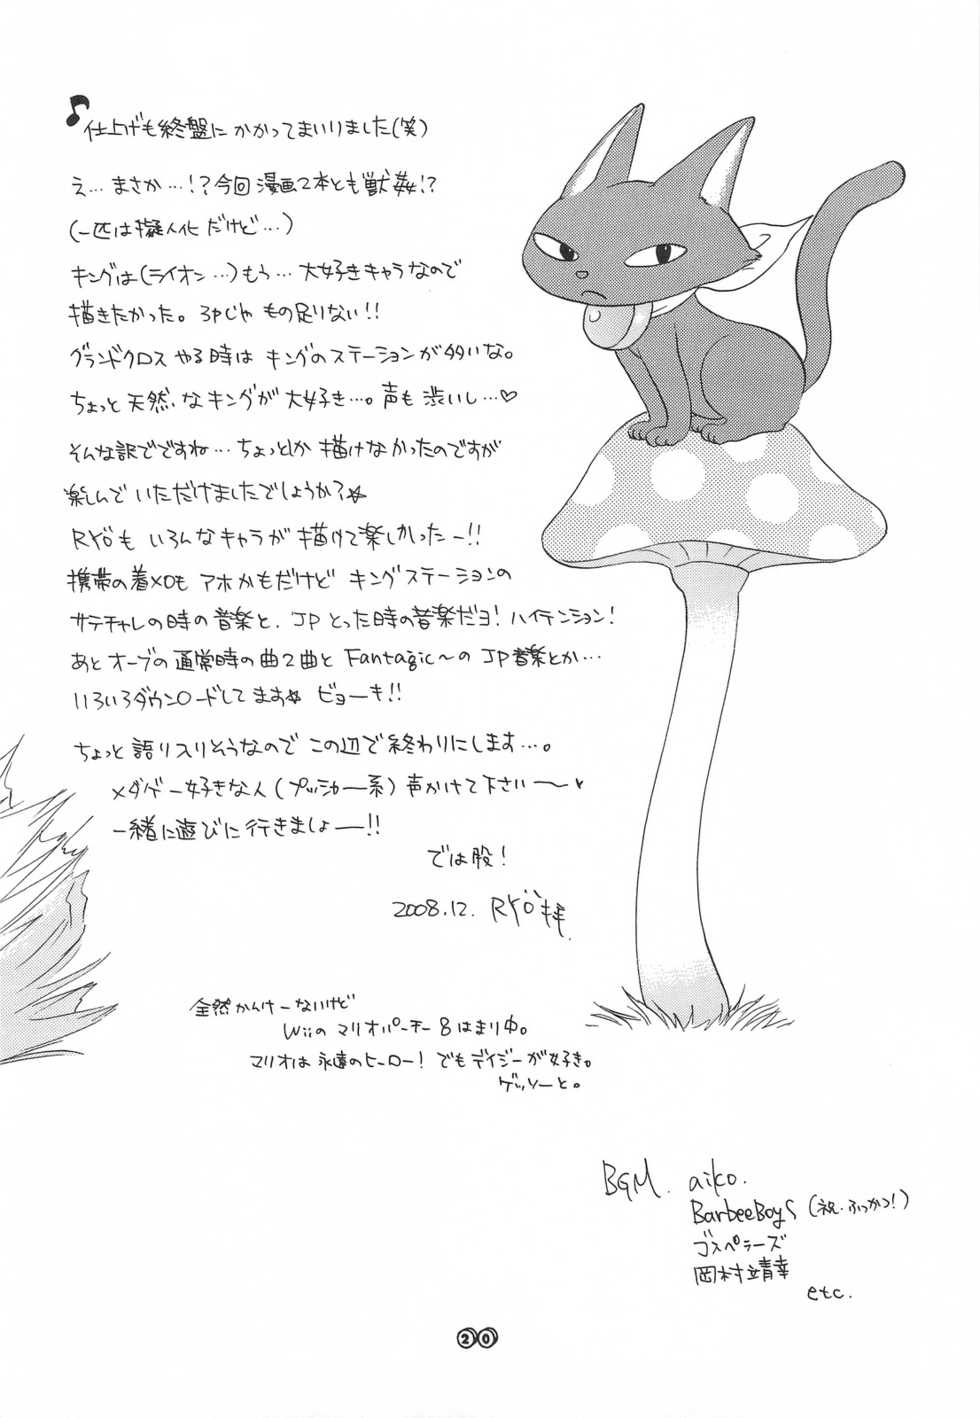 仕上げも終盤にかかってまいりました(笑)
え…まさか…!?今回漫画2本とも獣姦!?
(一匹は擬人化だけど…)
キングは(ライオン…)もう…大好きキャラなので
描きたかった。3Pじゃもの足りない!!
グランドクロスやる時はキングのステーションが多いな。
ちょっと天然なキングが大好き…。声も渋いし…♡
そんな訳でですね…ちょっとしか描けなかったのですが
楽しんでいただけましたでしょうか?☆
RYÖもいろんなキャラが描けて楽しかったー!!
携帯の着メロもアホかもだけどキングステーションの
サテチャレの時の音楽と、JPとった時の音楽だヨ!ハイテンション!
あとオーブの通常時の曲2曲とFantagic〜のJP音楽とか…
いろいろダウンロードしてます☆ビョーキ!!
ちょっと語り入りそうなのでこの辺で終わりにします…。
メダゲー好きな人(プッシャー系)声かけて下さい〜♥
一緒に遊びに行きましょー!!
では股!
2008.12. RYÖ拝
全然かんけーないけど
Wiiのマリオパーチー8はまり中。
マリオは永遠のヒーロー!でもデイジーが好き。
ゲッソーと。
BGM. aiko.
BarbeeBoyS(祝・ふっかつ!)
ゴスペラーズ
岡村靖幸
etc.
20